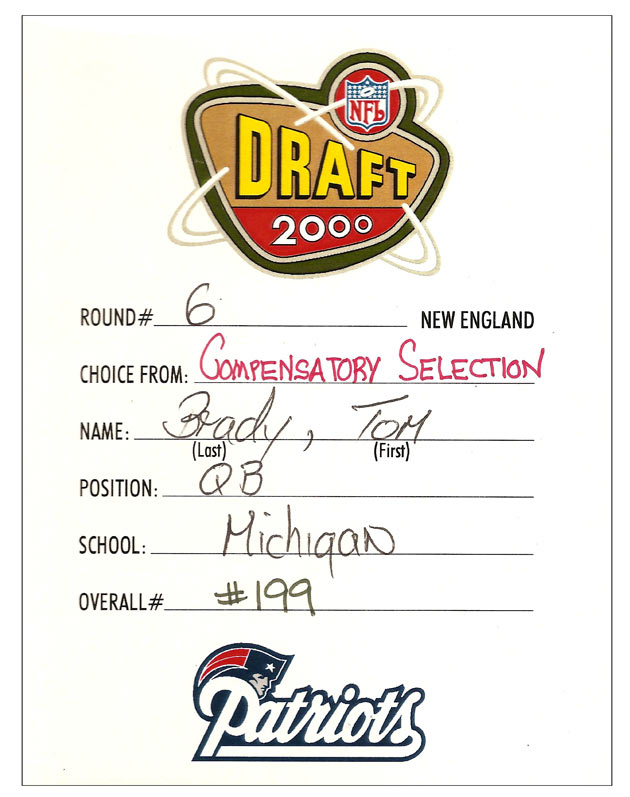 NFL
DRAFT
2000
ROUND# 6 NEW ENGLAND
CHOICE FROM: COMPENSATORY SELECTION
NAME: Brady, Tom
(Last) (First)
POSITION: QB
SCHOOL: Michigan
OVERALL# #199
Patriots